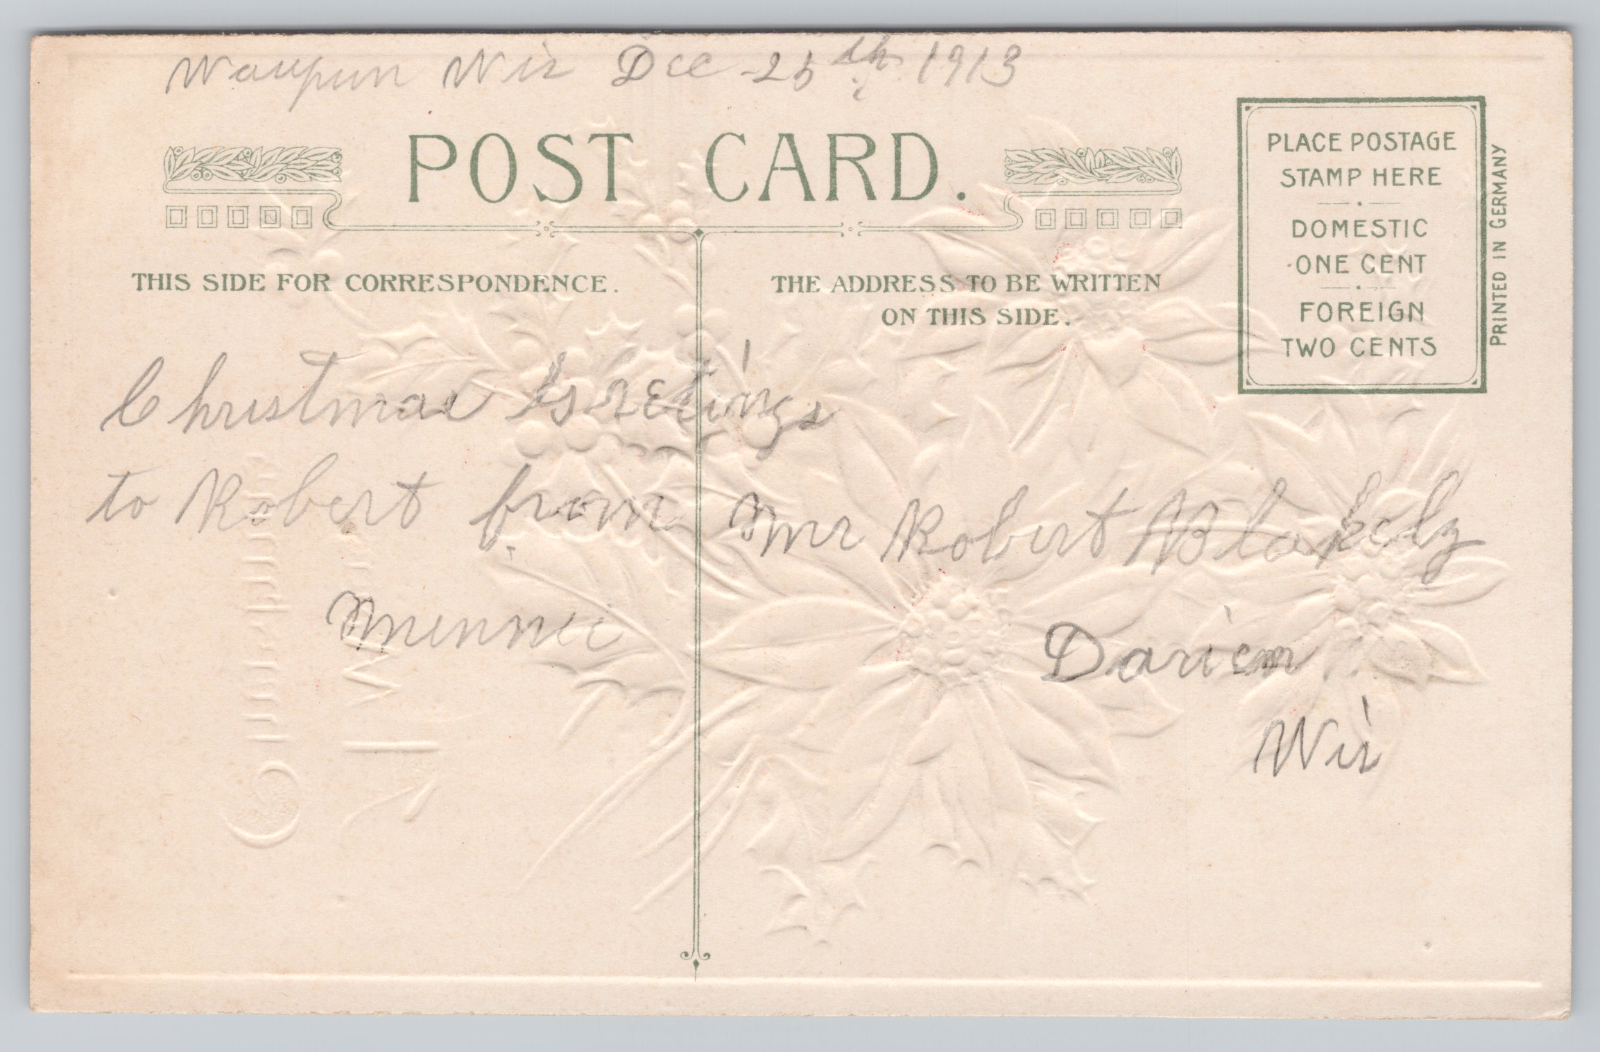 Waupun Wis Dec 25th 1913
POST CARD.
THIS SIDE FOR CORRESPONDENCE.
THE ADDRESS TO BE WRITTEN
ON THIS SIDE.
PLACE POSTAGE
STAMP HERE
DOMESTIC
ONE CENT
FOREIGN
TWO CENTS
PRINTED IN GERMANY
Christmas Greetings
to Robert from
Minnie
Mr Robert Blakely
Darien
Wis